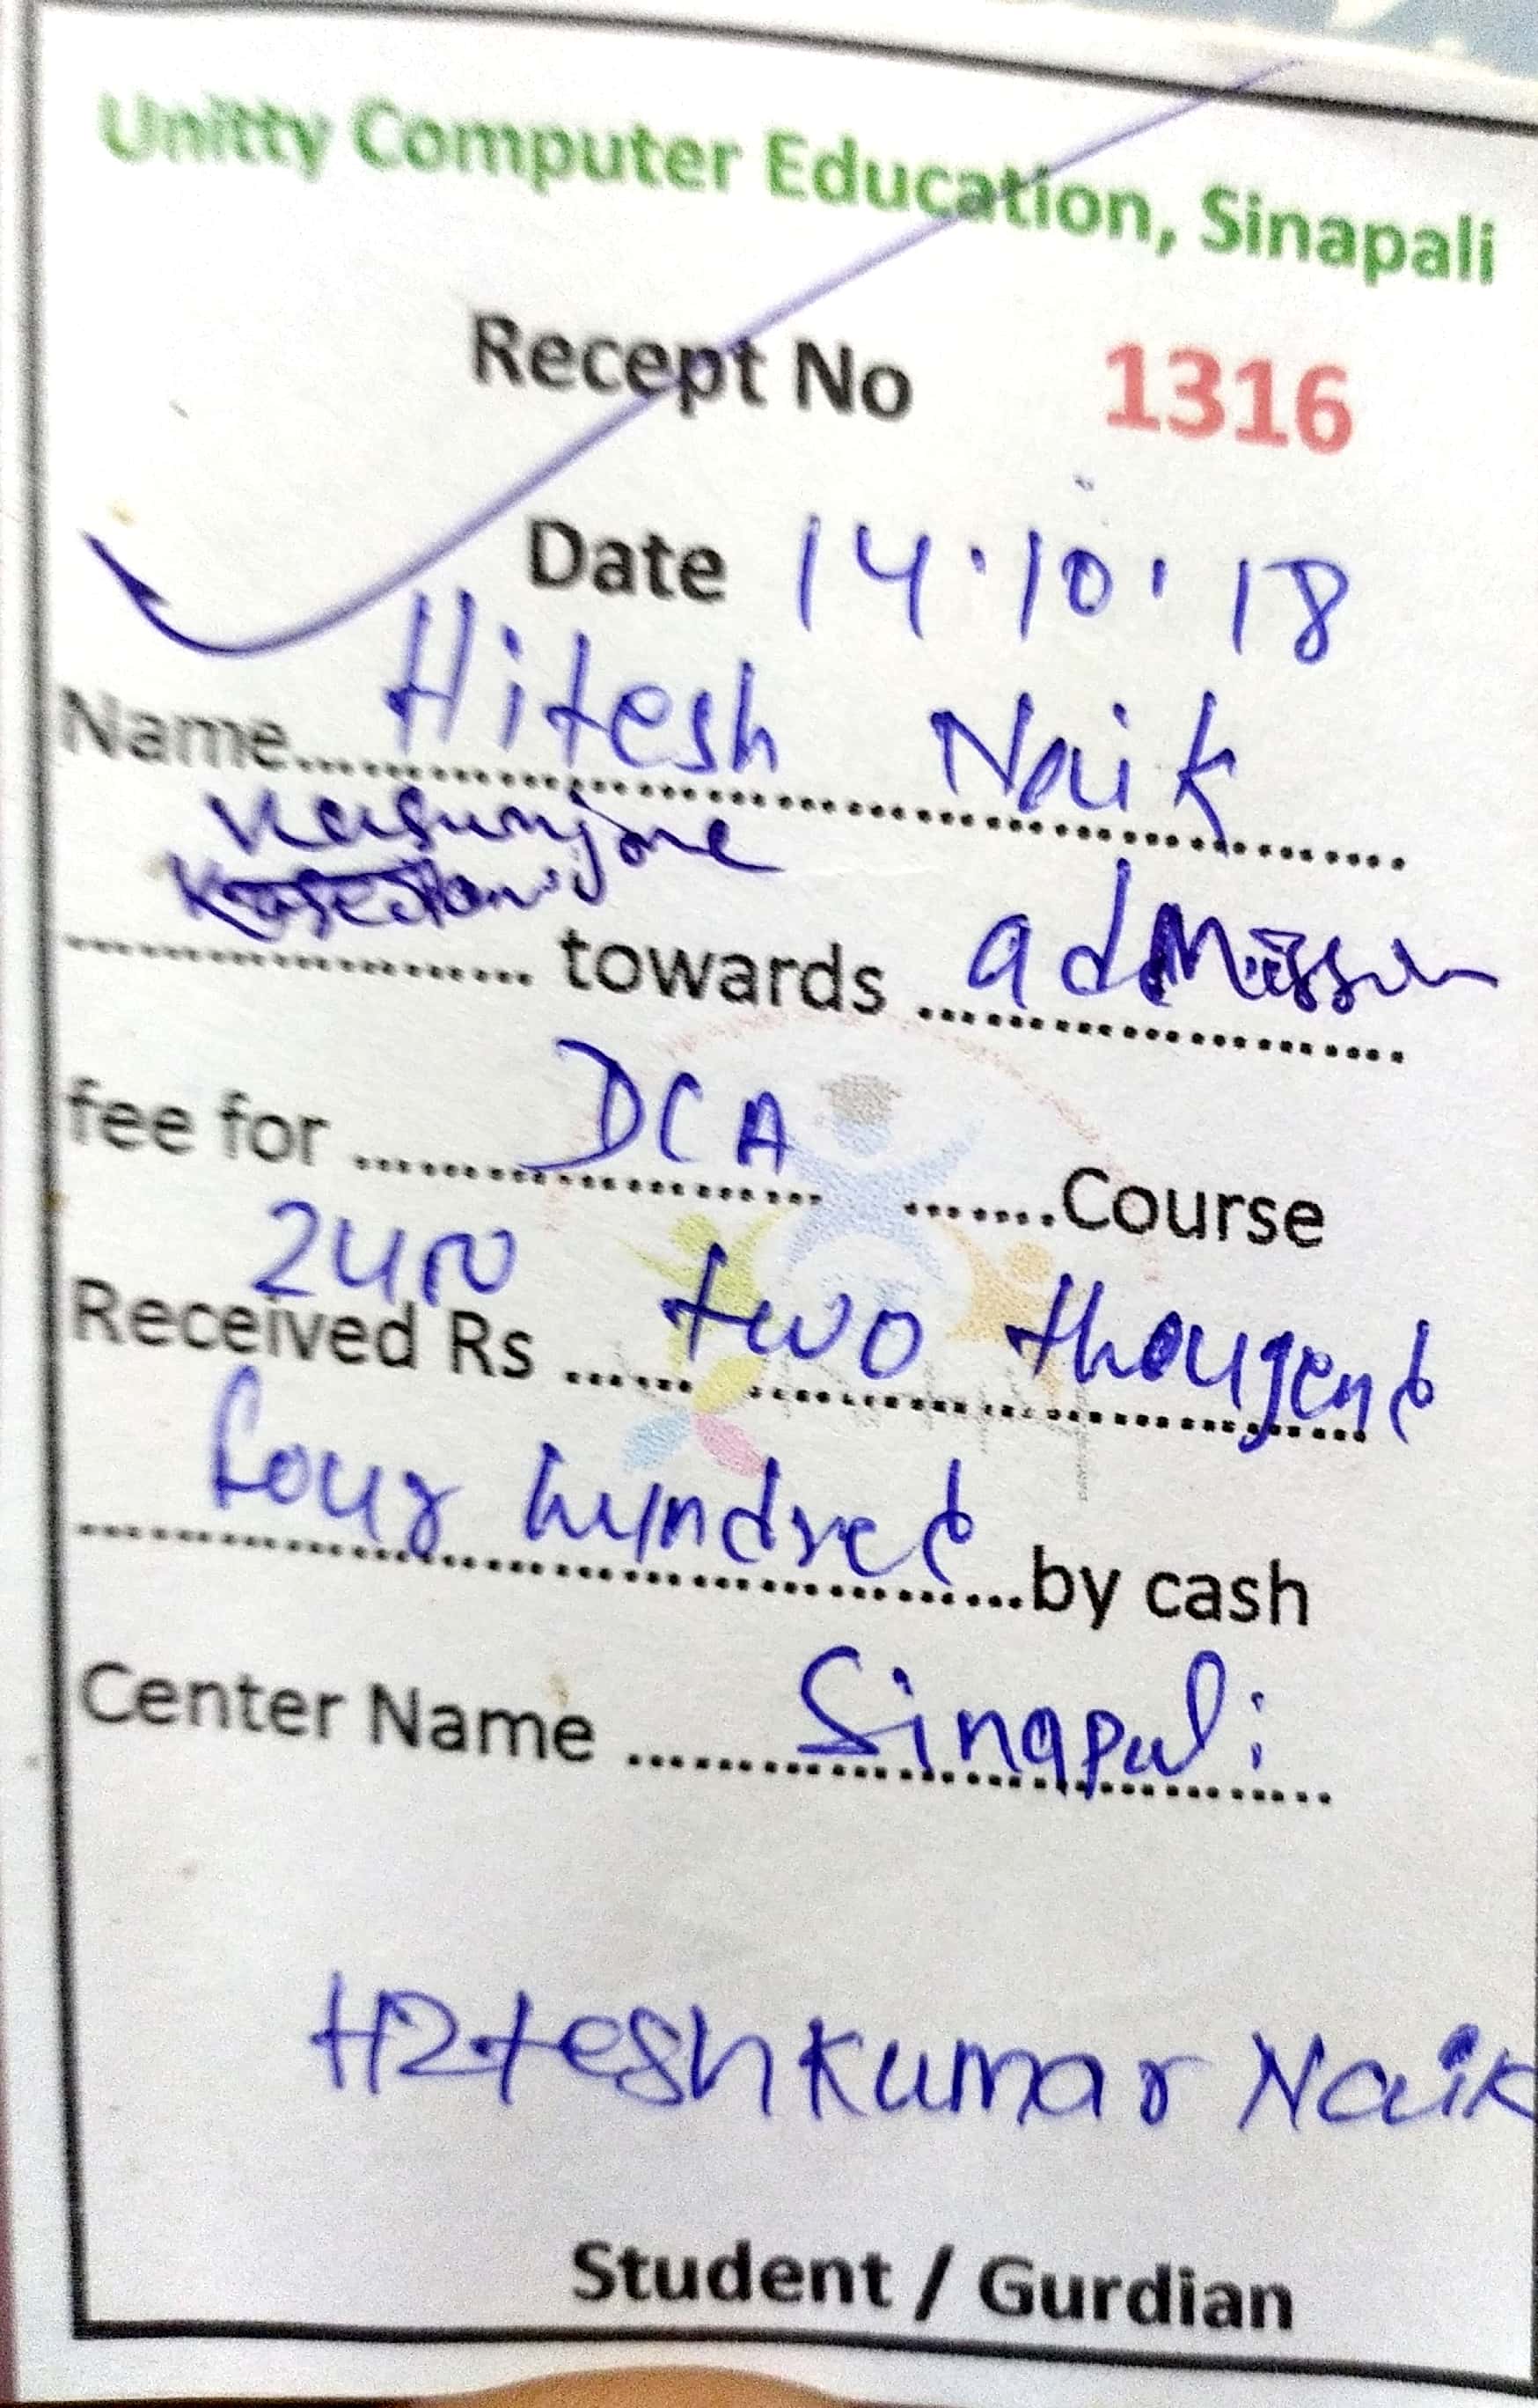 Unitty Computer Education, Sinapali
Recept No 1316
Date 14.10.18
Name Hitesh Naik
towards admission
fee for DCA Course
2400
Received Rs two thougend
four hundred by cash
Center Name Sinapali
Hiteshkumar Naik
Student / Gurdian